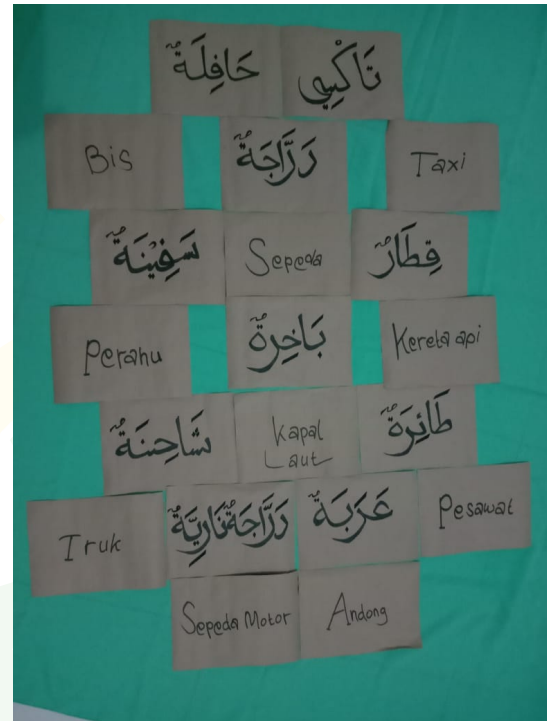 تَاكْسِي حَافِلَةٌ
Bis دَرَّاجَةٌ Taxi
سَفِيْنَةٌ Sepeda قِطَارٌ
Perahu بَاخِرَةٌ Kereta api
شَاحِنَةٌ Kapal Laut طَائِرَةٌ
Truk دَرَّاجَةٌ نَارِيَّةٌ عَرَبَةٌ Pesawat
Sepeda Motor Andong